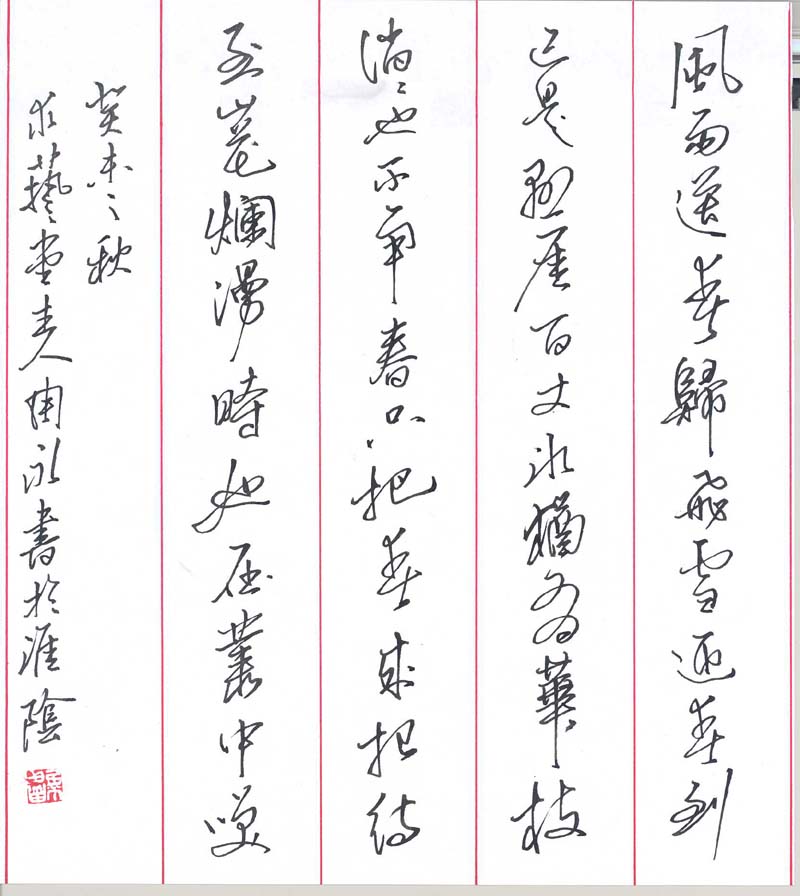 風雨送春歸飛雪迎春到
已是懸崖百丈冰猶有華枝
俏〻也不爭春只把春來報待
到山花爛漫時她在叢中笑
癸未之秋
求藝堂主人周永書於淮陰